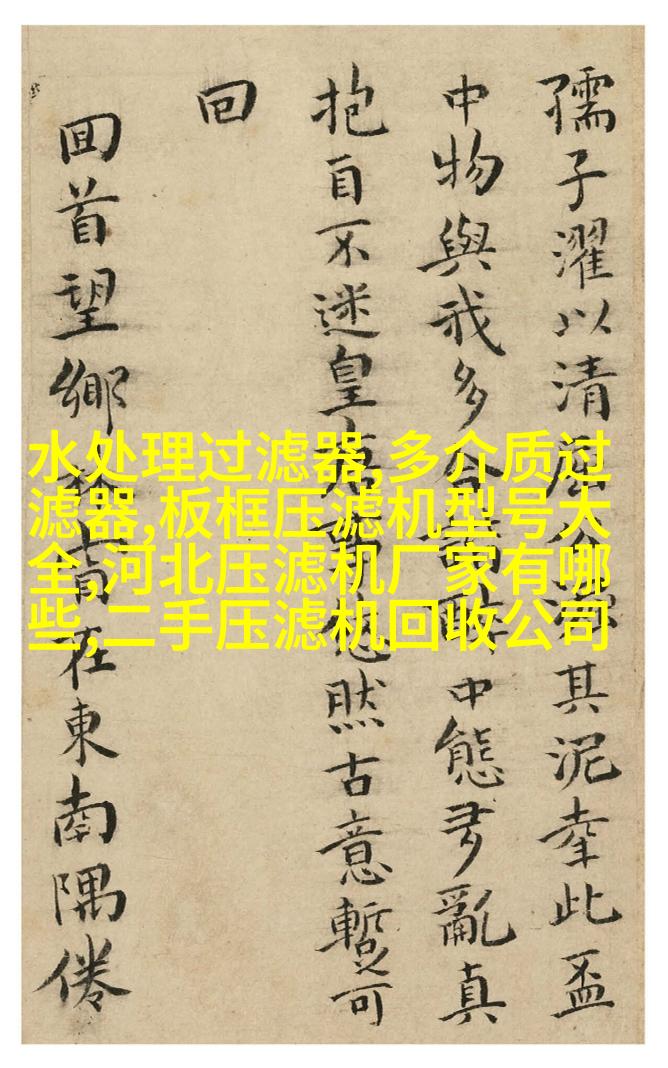 孺子濯以清屈公其泥此盃
中物與我多合醉中態多亂真
抱自不迷皇悠然古意暫可
回
回首望鄉在東南隅倦
水处理过滤器,多介质过
滤器,板框压滤机型号大
全,河北压滤机厂家有哪
些,二手压滤机回收公司